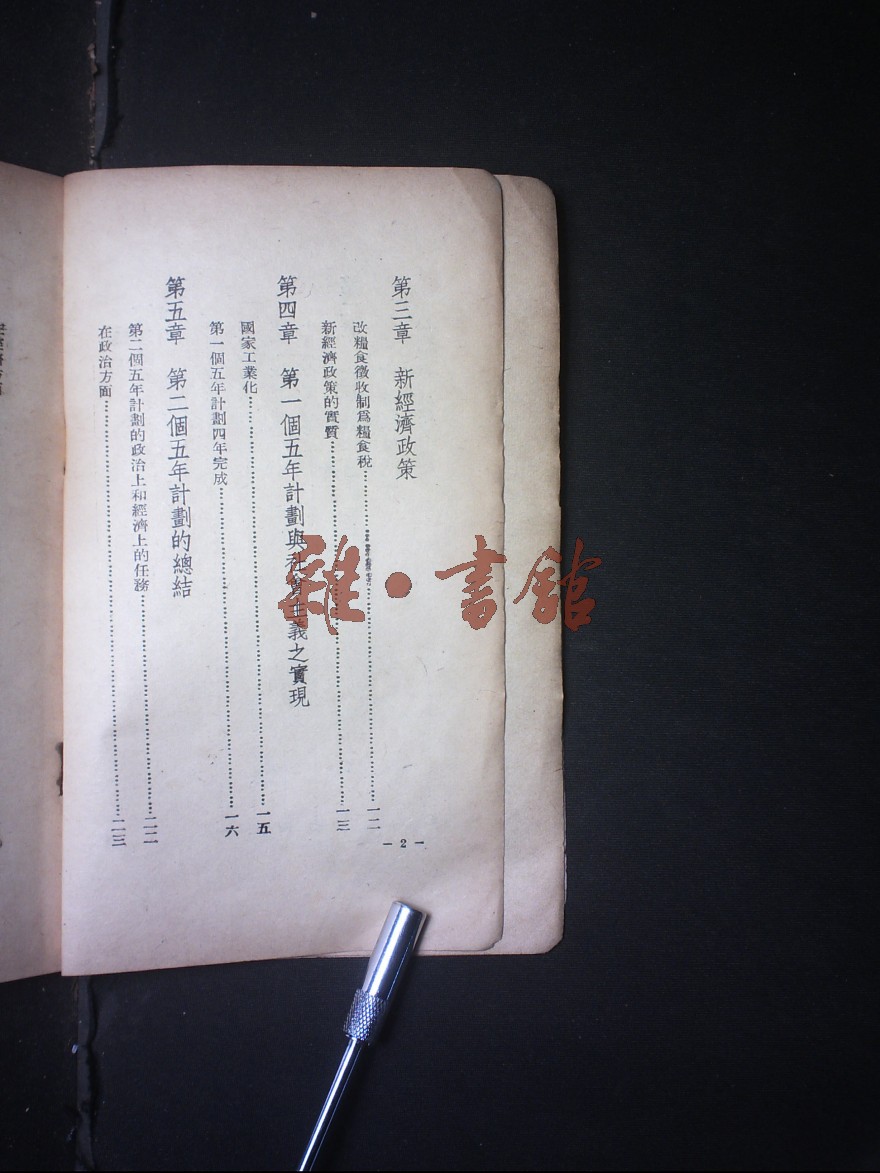 第三章　新經濟政策
改糧食徵收制爲糧食稅……一二
新經濟政策的實質……一三
第四章　第一個五年計劃與社會主義之實現
國家工業化……一五
第一個五年計劃四年完成……一六
第五章　第二個五年計劃的總結
第二個五年計劃的政治上和經濟上的任務……二二
在政治方面……二三
— 2 —
雜·書館